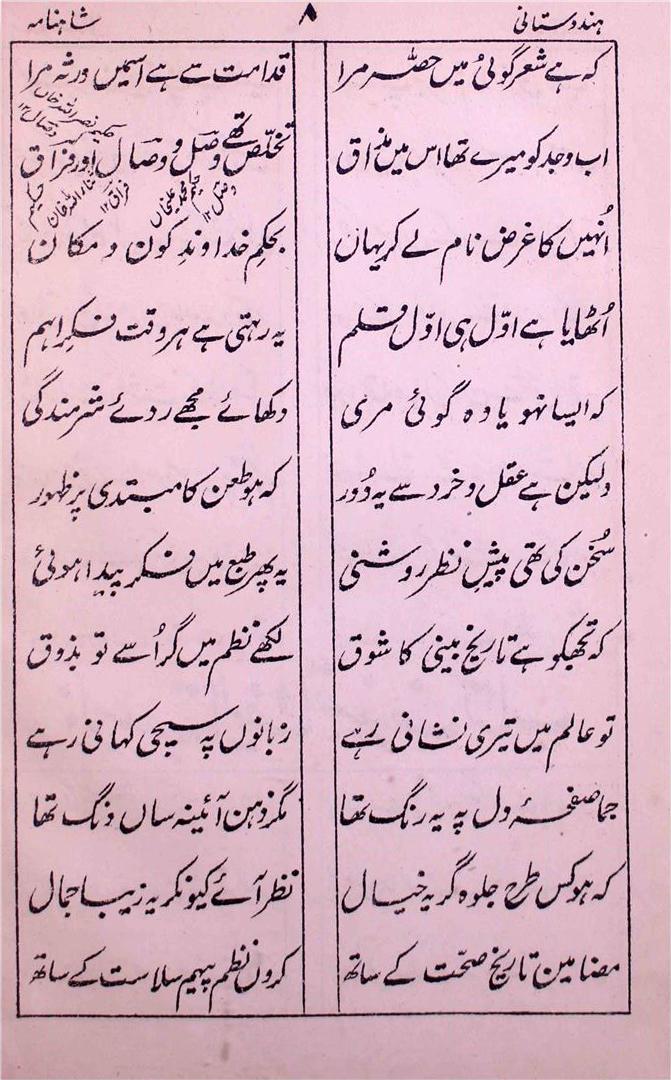 ہندوستانی ۸ شاہنامہ
کہ ہے شعر گوئی میں حصّہ مرا قدامت سے ہے اسمیں ورثہ مرا
اب وجد کو میرے تھا اس میں مذاق تخلّص تھے وصل و وصال اور فراق
حکیم نصر اللہ خاں وصال ۱۲
حکیم محمد علیخاں وصل ۱۲
حکیم ثناء اللہ خان فراق ۱۲
اُنھیں کا غرض نام لے کر یہاں بحکمِ خداوندِ کون و مکان
اُٹھایا ہے اوّل ہی اوّل قلم یہ رہتی ہے ہر وقت فکرِ اہم
کہ ایسا نہو یاوہ گوئی مری دکھائے مجھے ردئے شرمندگی
ولیکن ہے عقل و خرد سے یہ دُور کہ ہو طعن کا مبتدی پر ظہور
سُخن کی تھی پیشِ نظر روشنی یہ پھر طبع میں فکر پیدا ہوئی
کہ تجھکو ہے تاریخ بینی کا شوق لکھے نظم میں گر اُسے تو بذوق
تو عالم میں تیری نشانی رہے زبانوں پہ سچی کہانی رہے
جما صفحۂ دل پہ یہ رنگ تھا مگر ذہن آئینہ ساں دنگ تھا
کہ ہو کس طرح جلوہ گر یہ خیال نظر آئے کیونکر یہ زیبا جمال
مضامین تاریخ صحّت کے ساتھ کروں نظم پیہم سلاست کے ساتھ